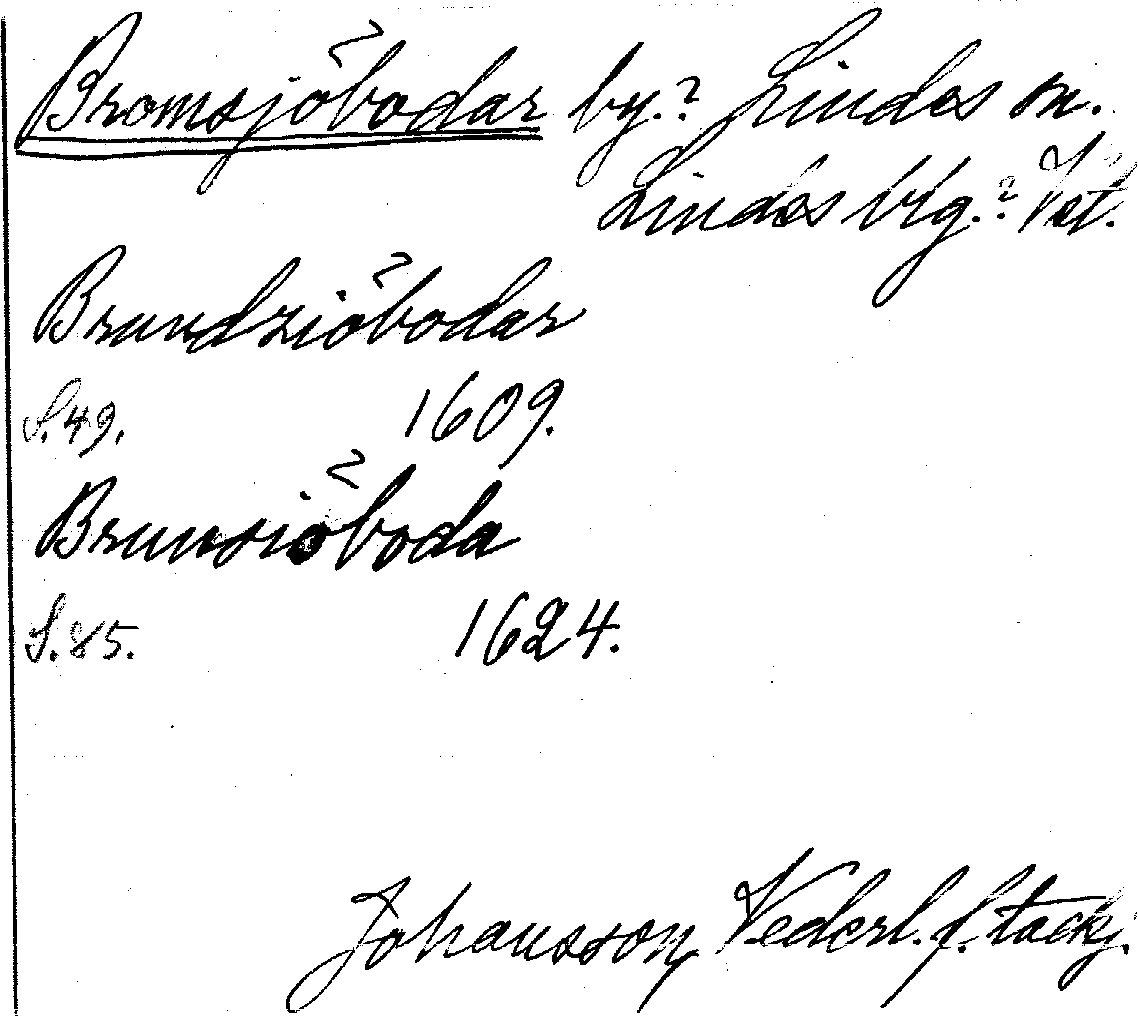 Bromsjöbodar by.? Lindes sn.
Lindes blg.? Vst.
Brundziöbodar
S. 49. 1609.
Brunsiöboda
S. 85. 1624.
Johansson, Vederl. f. tackj.